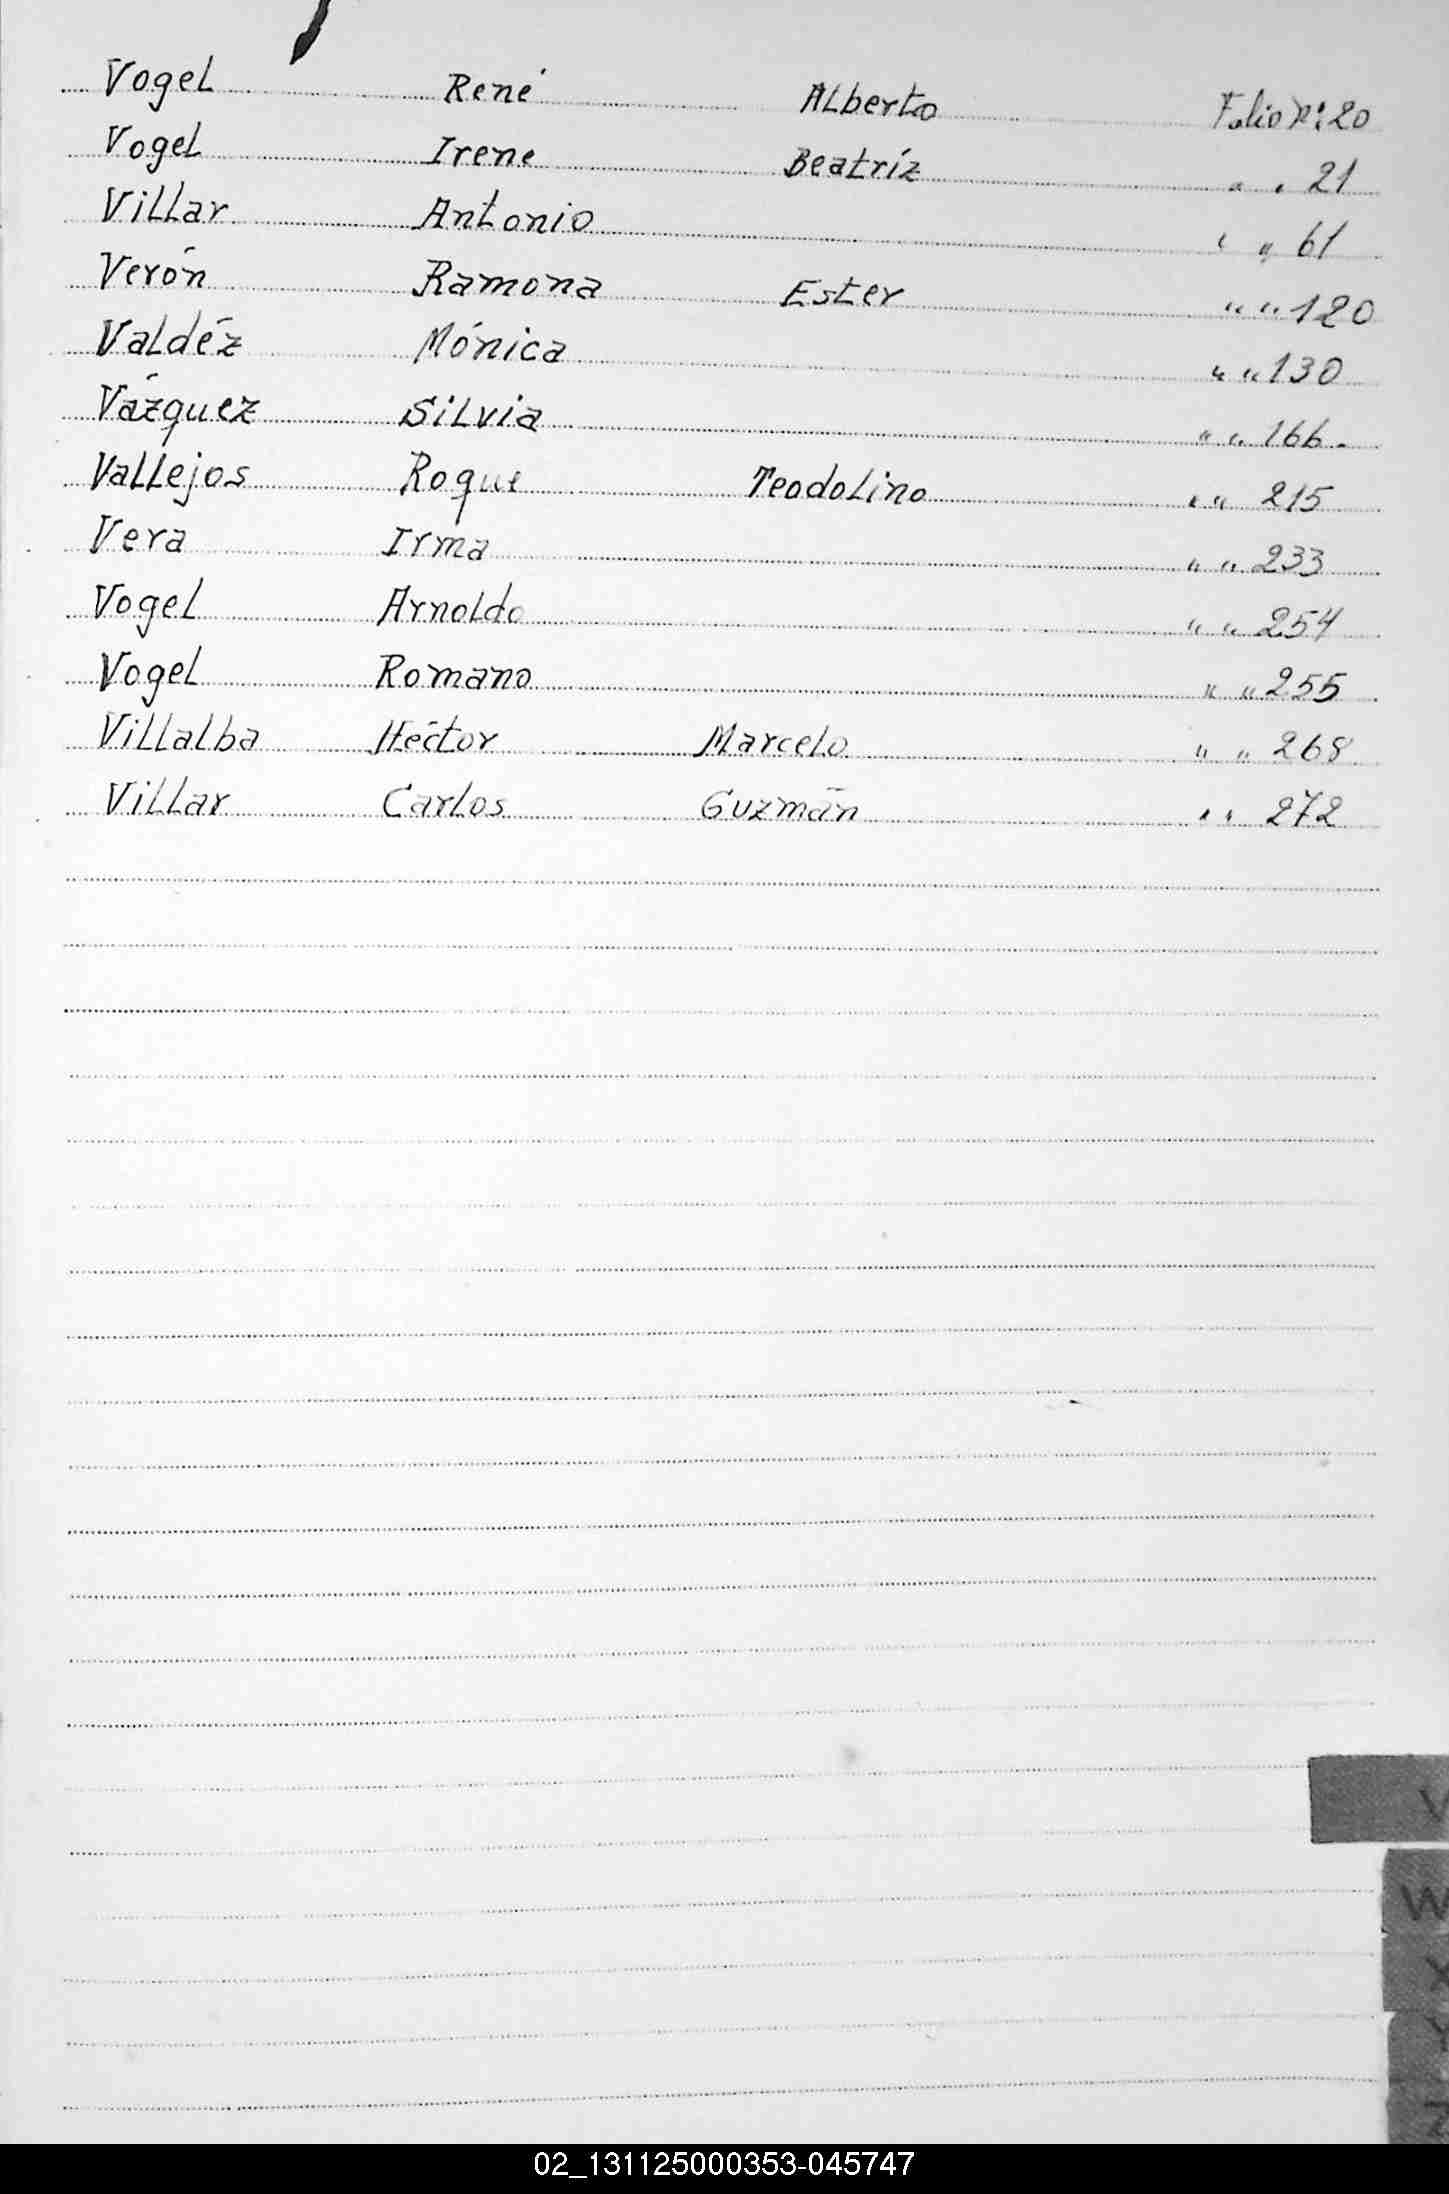 Vogel René Alberto Folio Nº: 20
Vogel Irene Beatríz " " 21
Villar Antonio " " 61
Verón Ramona Ester " " 120
Valdéz Mónica " " 130
Vázquez Silvia " " 166.
Vallejos Roque Teodolino " " 215
Vera Irma " " 233
Vogel Arnoldo " " 254
Vogel Romano " " 255
Villalba Héctor Marcelo " " 268
Villar Carlos Guzmán " " 272
V
W
X
Y
Z
02_131125000353-045747